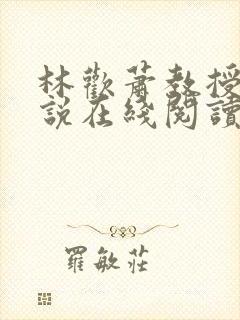 林歡蕭教授
說在綫閱讀
羅敏莊